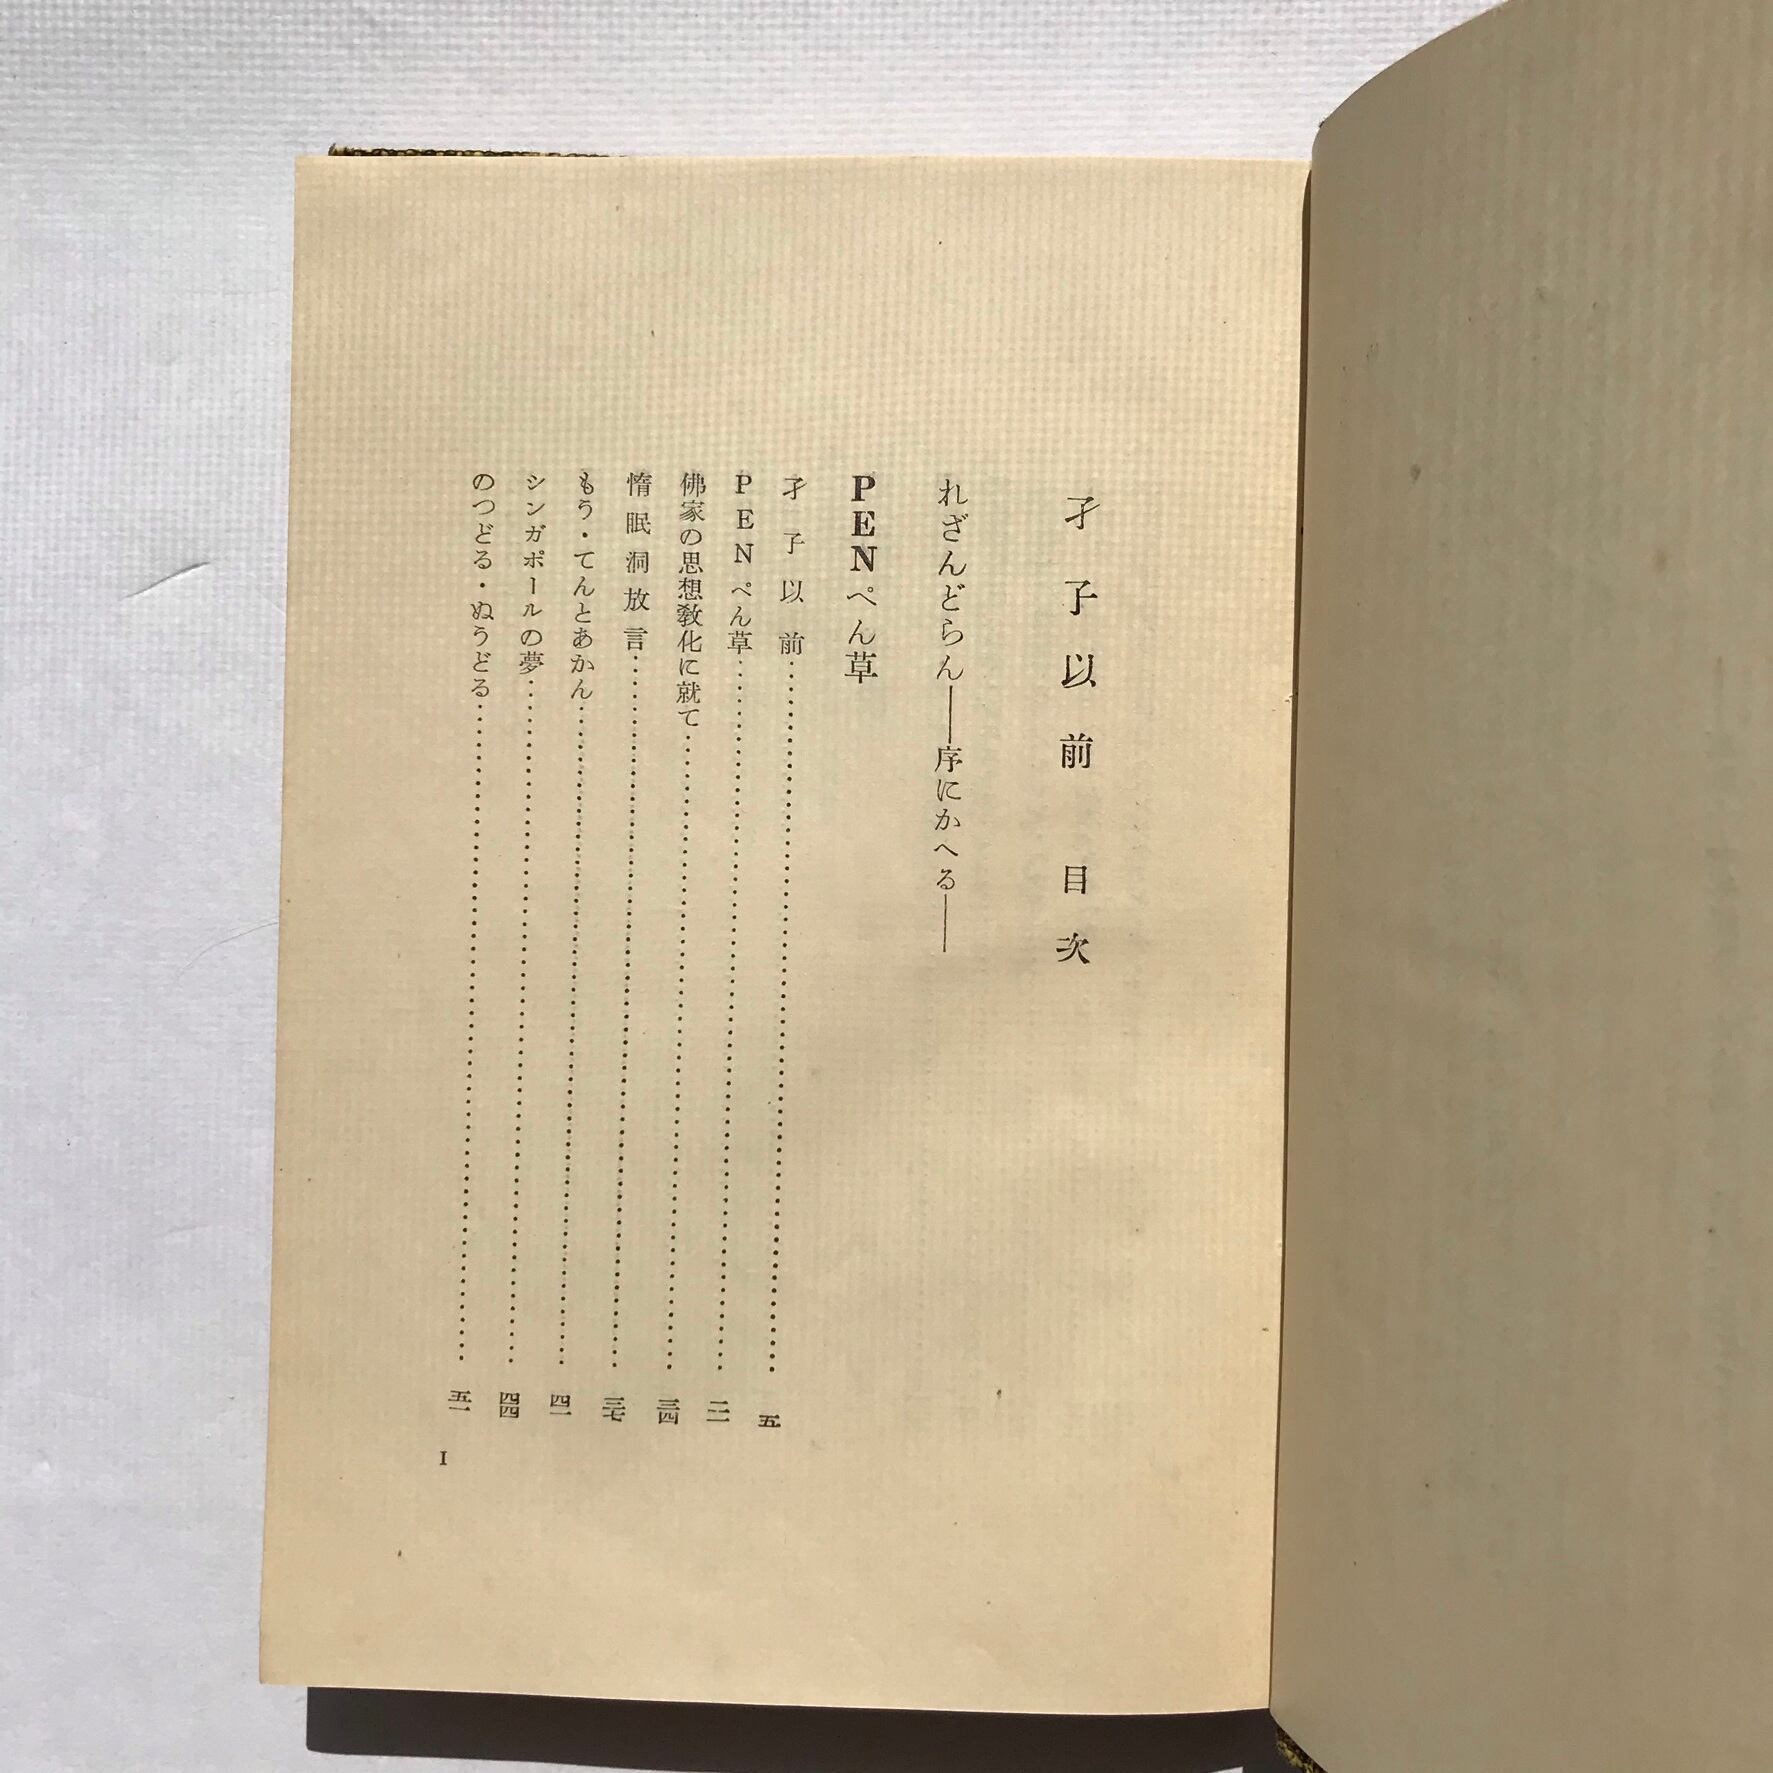 孑孓以前　目次
れざんどらん――序にかへる――
PENぺん草
孑孓以前……五
PENぺん草……
佛家の思想敎化に就て……三四
惰眠洞放言……三七
もう・てんとあかん……四一
シンガポールの夢……四四
のつどる・ぬうどる……五一
I